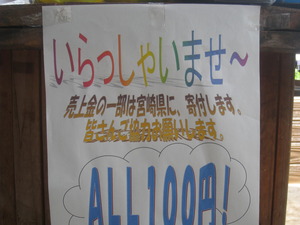 いらっしゃいませ～
売上金の一部は宮崎県に、寄付します。
皆さんご協力お願いします。
ALL100円!